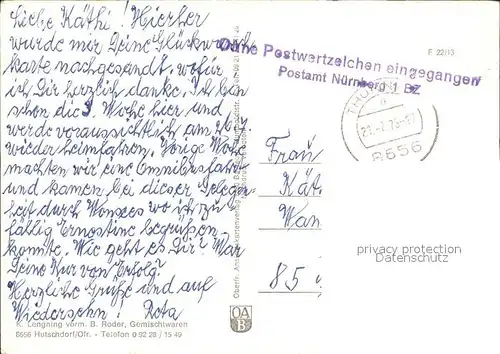 Liebe Käthi! Hierher
wurde mir Deine Glückwunsch-
karte nachgesandt, wofür
ich Dir herzlich danke. Ich bin
schon die 3. Woche hier und
werde voraussichtlich am
wieder heimfahren. Vorige Woche
machten wir eine Omnibusfahrt
und kamen bei dieser Gelegen-
heit durch Wonsees wo ich zu-
fällig Ernestine begrüßen
konnte. Wie geht es Dir? War
Deine Kur von Erfolg?
Herzliche Grüße und auf
Wiedersehn! Reta
K. Longning vorm. B. Roder, Gemischtwaren
8656 Hutschdorf/Ofr. - Telefon 0 92 28 / 15 49
OA
B
Ohne Postwertzeichen eingegangen
Postamt Nürnberg 1 BZ
F 22/13
THURNAU
8656
Frau
Kät
Wan
85
privacy protection
Datenschutz